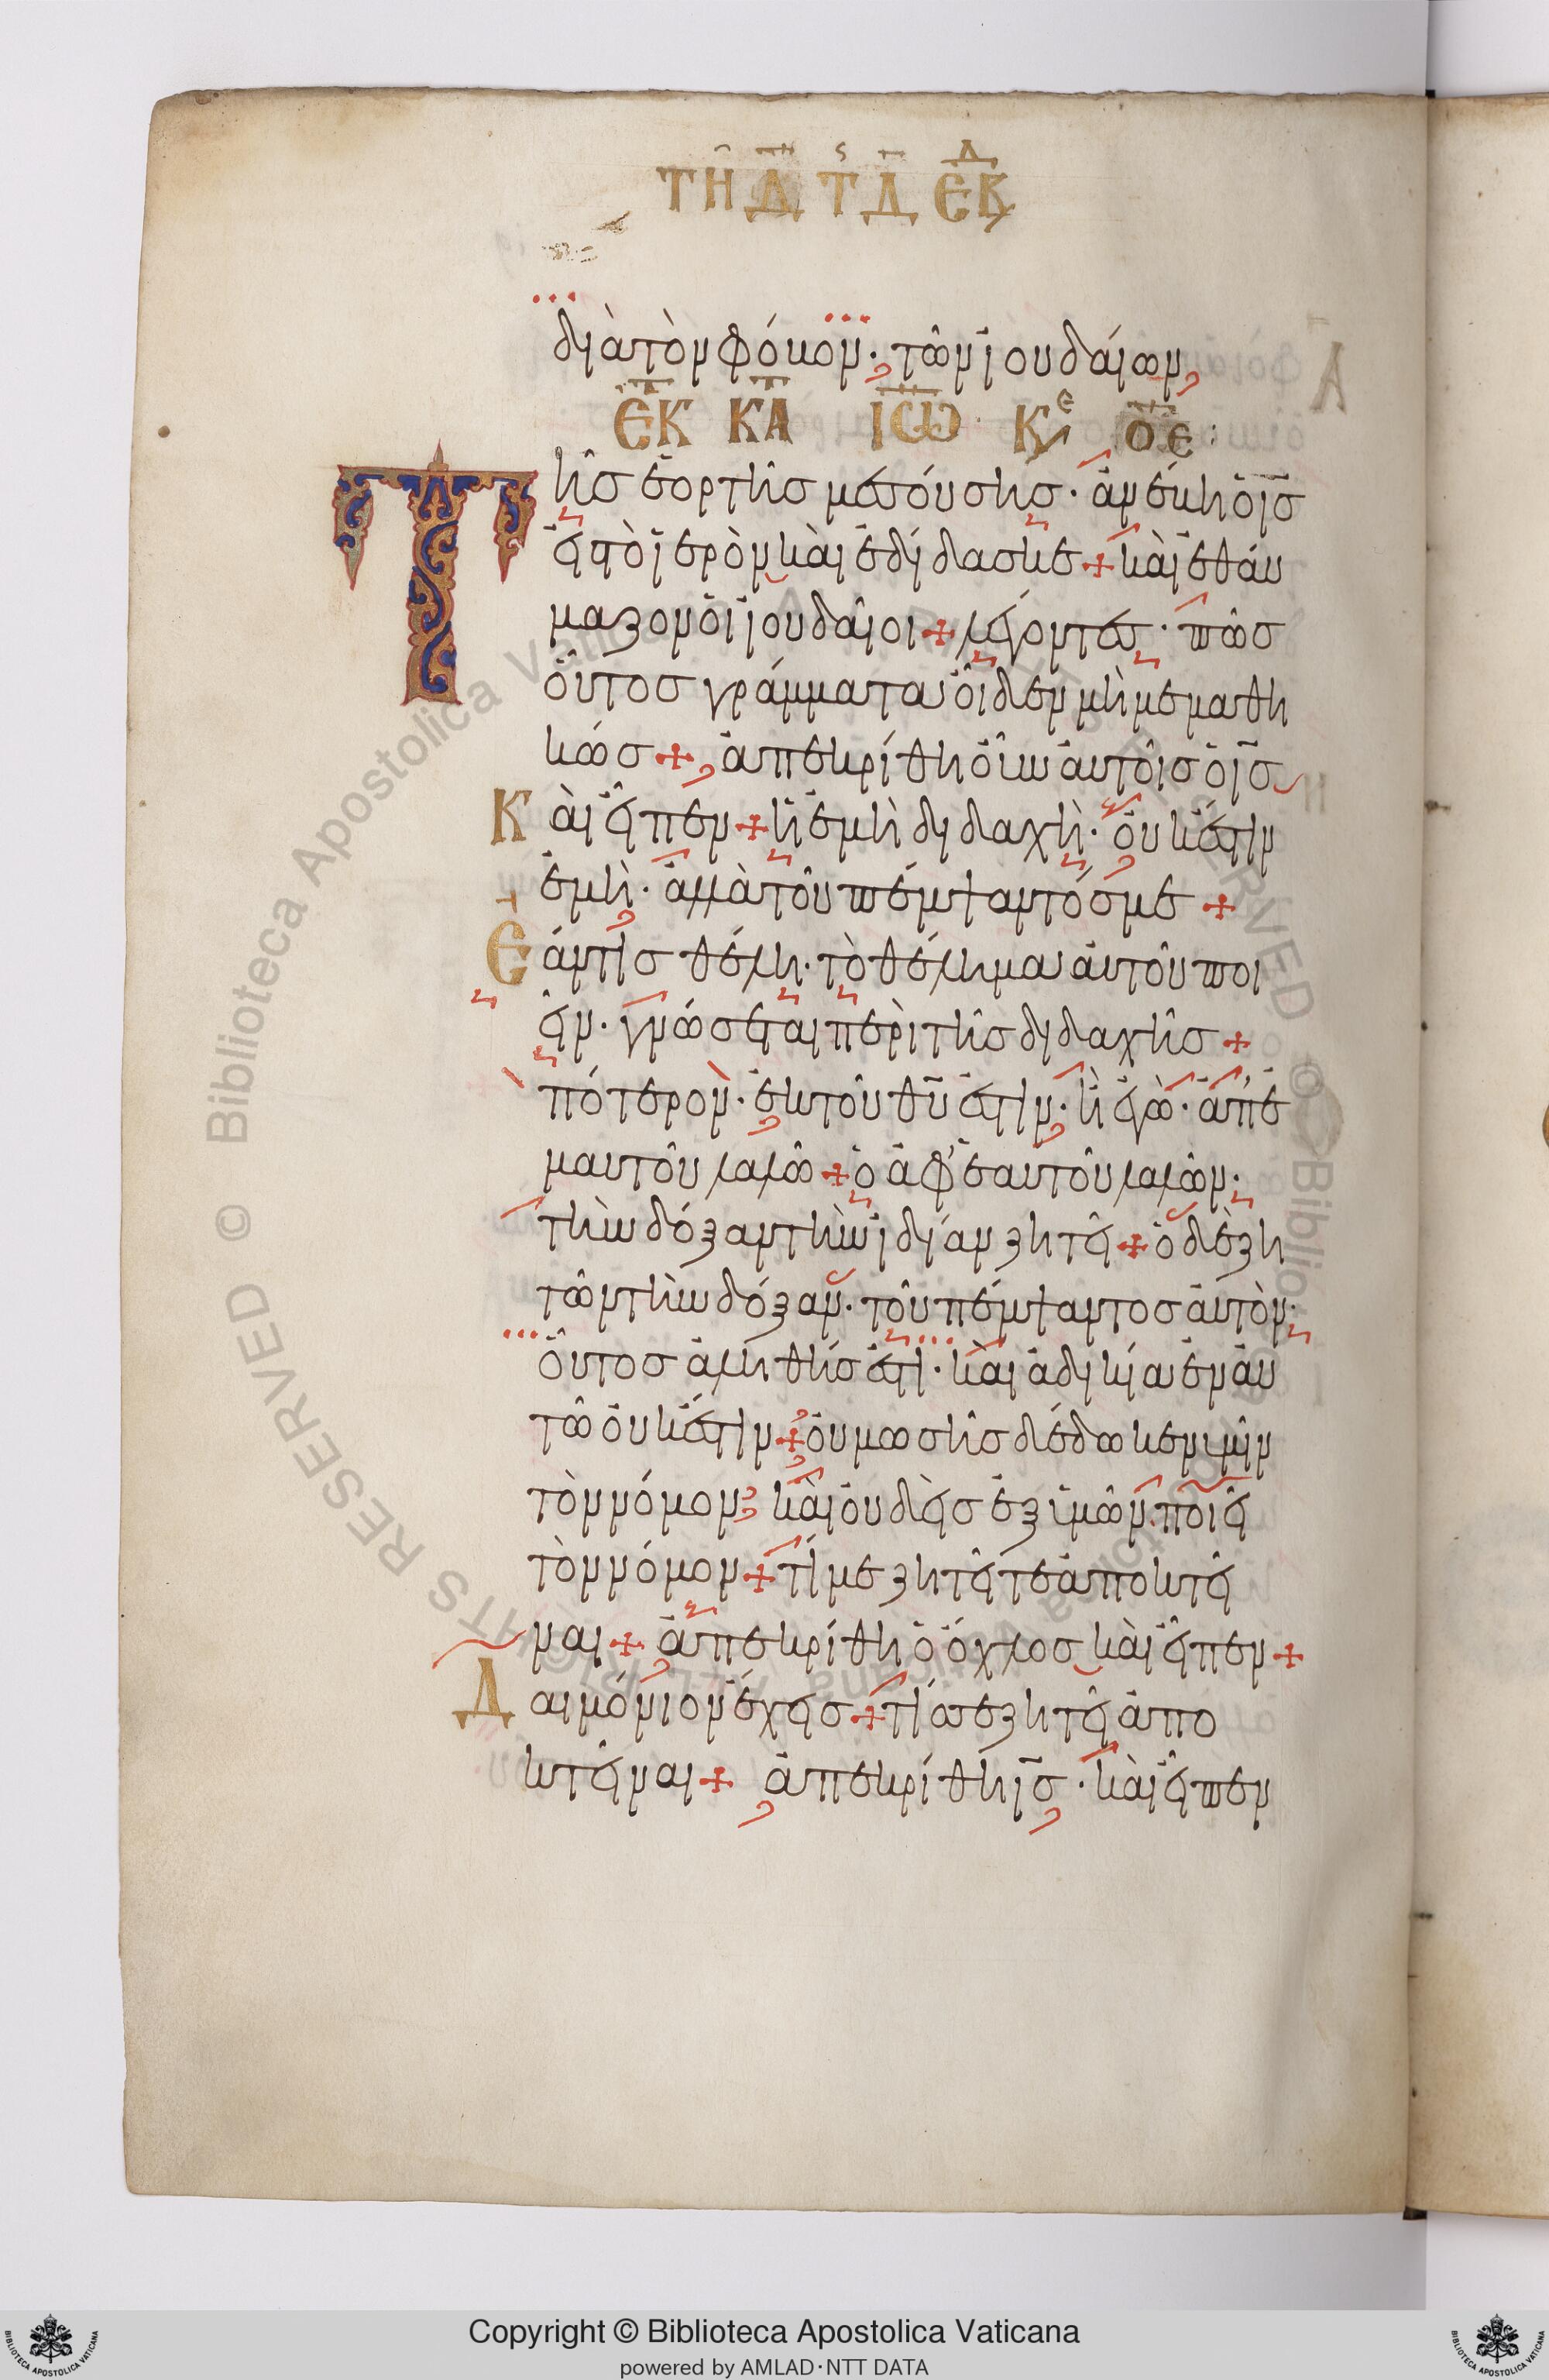 ΤΗ Δ Τ Δ ΕΒΔ
διὰ τὸν φόβον· τῶν ἰουδαίων
ΕΚ ΚΑ ΙΩ ΚΕ
Τῆς ἑορτῆς μεσούσης· ἀνέβη ὁ ις
εἰς τὸ ἱερὸν καὶ ἐδίδασκε + καὶ ἐθαύ
μαζον οἱ ἰουδαῖοι + λέγοντες· πῶς
οὗτος γράμματα οἶδεν μὴ μεμαθη
κώς + ἀπεκρίθη οὖν αὐτοῖς ὁ ις
Καὶ εἶπεν + ἡ ἐμὴ διδαχὴ· οὐκ ἔστιν
ἐμὴ· ἀλλὰ τοῦ πέμψαντός με +
Ἐάν τις θέλη· τὸ θέλημα αὐτοῦ ποι
εῖν· γνώσεται περὶ τῆς διδαχῆς +
πότερον· ἐκ τοῦ θυ ἐστιν· ἢ ἐγὼ· ἀπ' ἐ
μαυτοῦ λαλῶ + ὁ ἀφ' ἑαυτοῦ λαλῶν·
τὴν δόξαν τὴν ἰδίαν ζητεῖ + ὁ δὲ ζη
τῶν τὴν δόξαν· τοῦ πέμψαντος αὐτὸν·
οὗτος ἀληθής ἐστι· καὶ ἀδικία ἐν αὐ
τῶ οὐκ ἔστιν + οὐ μωσῆς δέδωκεν ὑμῖν
τὸν νόμον; καὶ οὐδεὶς ἐξ ὑμῶν ποιεῖ
τὸν νόμον + τί με ζητεῖτε ἀποκτεῖ
ναι + ἀπεκρίθη ὁ ὄχλος καὶ εἶπεν +
Δαιμόνιον ἔχεις + τίς σε ζητεῖ ἀπο
κτεῖναι + ἀπεκρίθη ις· καὶ εἶπεν
© Biblioteca Apostolica Vaticana ALL RIGHTS RESERVED
Copyright © Biblioteca Apostolica Vaticana
powered by AMLAD·NTT DATA